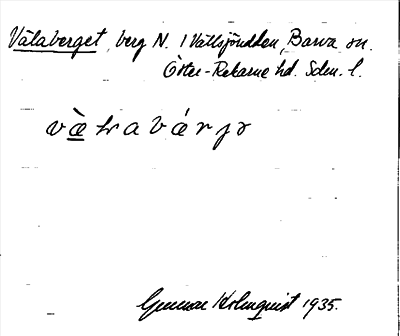 Välaberget, berg N. i Vallsjöudden, Barva sn.
Öster-Rekarne hd. Sdm. l.
Gunnar Holmquist 1935.